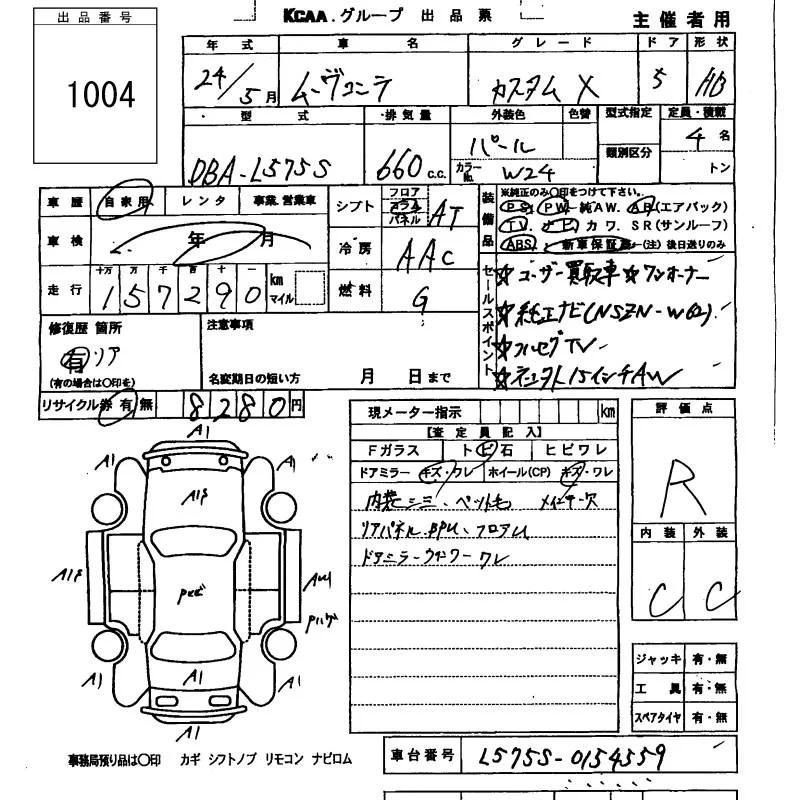 出品番号
1004
KCAA.グループ 出品票
主催者用
年式 車名 グレード ドア 形状
24/5月 ムーヴコンテ カスタム X 5 HB
型式 排気量 外装色 色替 型式指定 定員・積載
DBA-L575S 660 c.c. パール 類別区分 4名
カラーNo. W24 トン
車歴 自家用 レンタ 事業.営業車
シフト フロア コラム パネル AT
装備品 ※純正のみ○印をつけて下さい。
PS・PW・純AW.AB(エアバック)
TV.ナビ カワ.SR(サンルーフ)
ABS. 新車保証書(注)後日送りのみ
車検 年 月
冷房 AAC
走行 十万 万 千 百 十 一 km マイル
157290
燃料 G
セールスポイント
☆ユーザー買取車☆ワンオーナー
☆純正ナビ(NSZN-W62)
☆フルセグTV
☆社外15インチAW
修復歴 箇所
有 リア
(有の場合は○印を)
注意事項
名変期日の短い方 月 日まで
リサイクル券 有 無 8280円
現メーター指示 km
【査定員記入】
Fガラス トビ石 ヒビワレ
ドアミラー キズ・ワレ ホイール(CP) キズ・ワレ
内装シミ、ペット毛
リアパネル
ドアミラーウインカーワレ
評価点
R
内装 外装
C C
A1
A1
A1
A1
A1
A1
A1
A1
ジャッキ 有・無
工具 有・無
スペアタイヤ 有・無
事務局預り品は○印 カギ シフトノブ リモコン ナビロム
車台番号 L575S-0154559